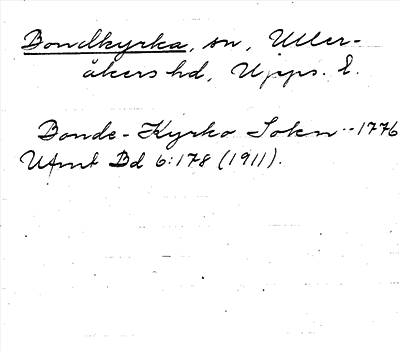 Bondkyrka, sn, Uller-
åkers hd, Upps. l.
Bonde-Kyrko Sokn --1776
Ufmt Bd 6:178 (1911).